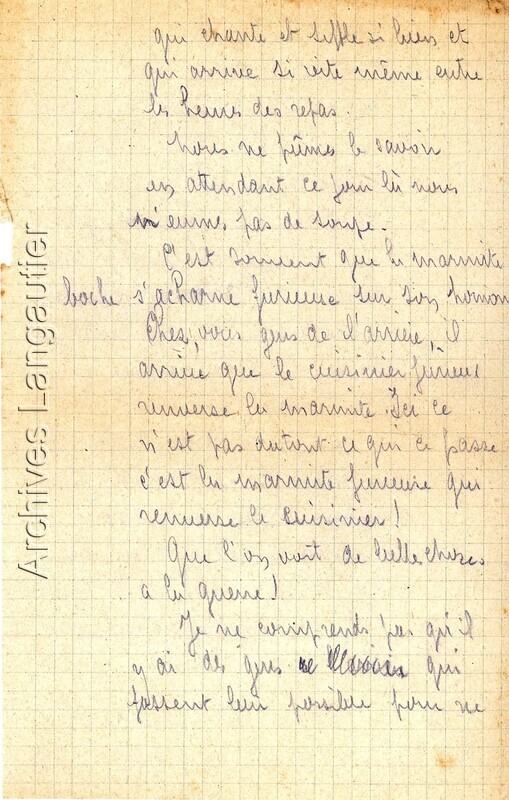 qui chante et siffle si bien et
qui arrive si vite même entre
les heures des repas.
Nous ne pûmes le savoir
en attendant ce jour là nous
n'eumes pas de soupe.
C'est souvent que la marmite
boche s'acharne furieuse sur son homon
Chez vous gens de l'arrière, il
arrive que le cuisinier furieux
renverse la marmite. Ici ce
n'est pas dutout ce qui ce passe
c'est la marmite furieuse qui
renverse le cuisinier!
Que l'on voit de belles choses
a la guerre!
Je ne comprends pas qu'il
y ai des gens qui
fassent leur possible pour ne
Archives Langautier